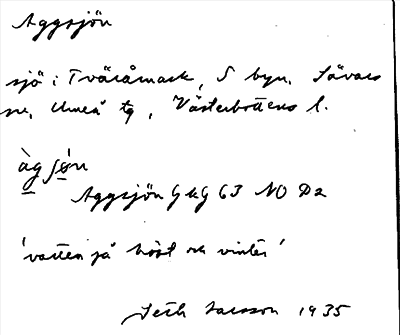 Aggsjön
sjö i Tväråmark, S byn, Sävars
sn, Umeå tg, Västerbottens l.
àg ʃǿn
Aggsjön GKG 63 NO Da
'vatten på höst och vinter'
Seth Larsson 1935